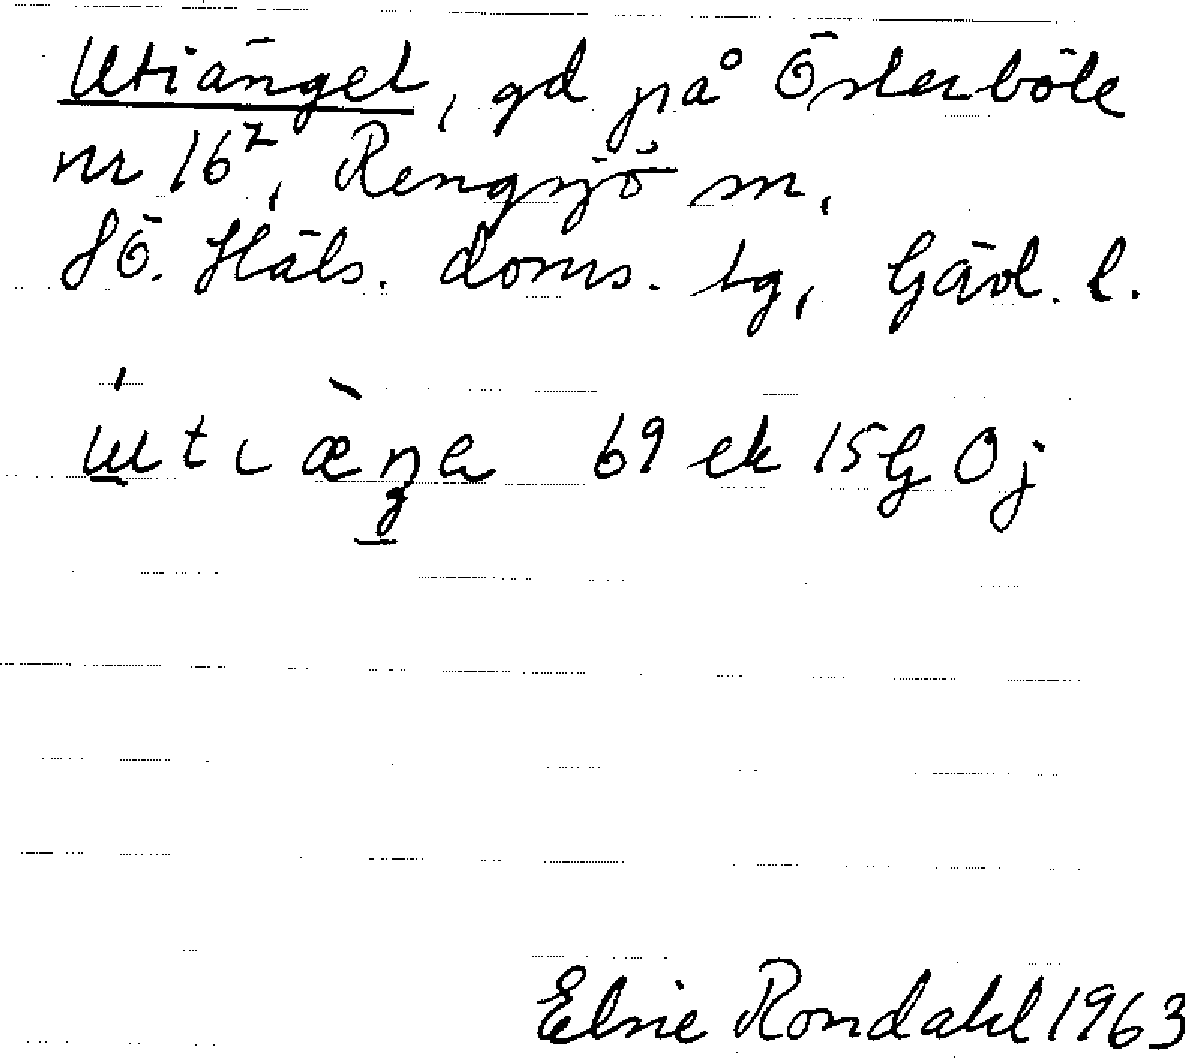 Utiänget, gd på Österböle
nr 16², Rengsjö sn,
SÖ. Häls. doms. tg, Gävl. l.
69 ek 15G 0j
Elsie Rondahl 1963